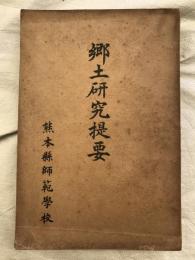 郷土研究提要
熊本縣師範學校